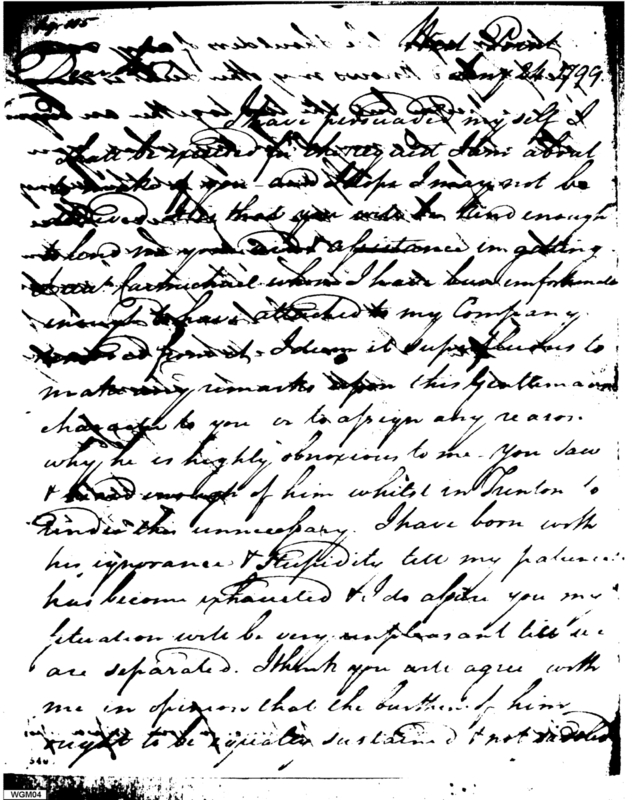 West Point
Dear Sir Jany 24 1799.
I have persuaded my self I
shall be in the aid I am about
to of you and I hope I may not be
that you will be kind enough
to lend me your assistance in getting
Carmichael whom I have been unfortunate
enough to have attached to my Company
I deem it superfluous to
make any remarks upon this Gentlemans
character to you or to assign any reason
why he is highly obnoxious to me. You saw
& heard enough of him whilst in Trenton to
render this unnecessary. I have born with
his ignorance & stupidity till my patience
has become exhausted & I do assure you my
situation will be very unpleasant till we
are separated. I think you will agree with
me in opinion that the burthen of him
ought to be equally sustained & not saddled
540
WGM04